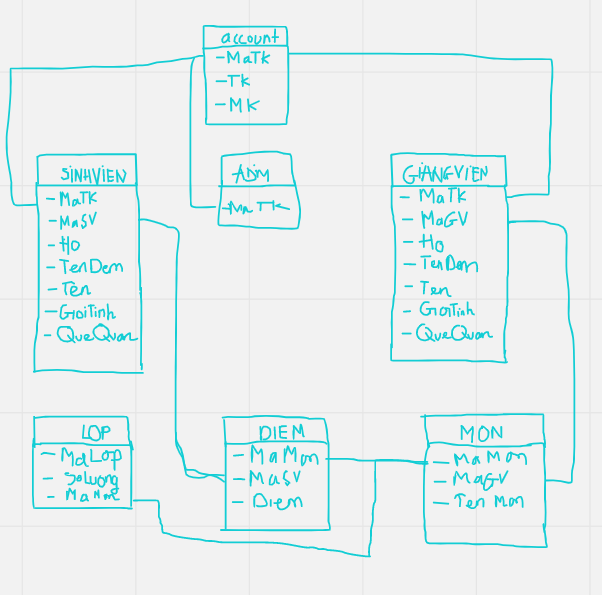 account
-MaTk
-TK
-MK
SINHVIEN
-MaTK
-MaSV
-Ho
-TenDem
-Tên
-GoiTinh
-QueQuan
ADM
-MaTK
GIANGVIEN
-MaTK
-MaGV
-Ho
-TenDem
-Ten
-GoiTinh
-QueQuan
LOP
-MaLop
-SoLuong
-MaMon
DIEM
-MaMon
-MaSV
-Diem
MON
-MaMon
-MaGV
-Ten Mon